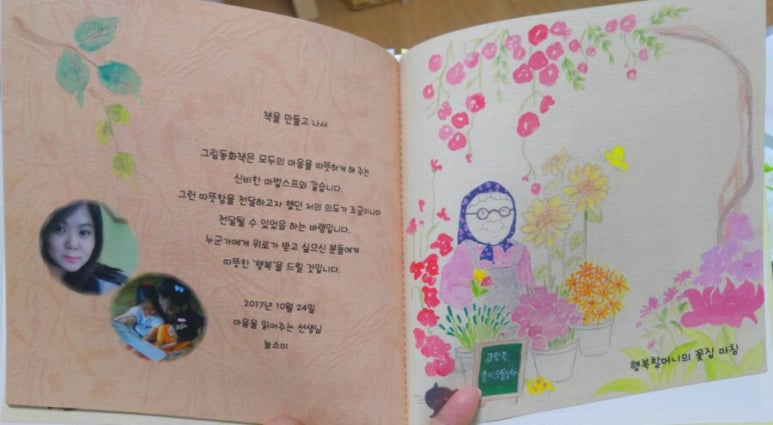 책을 만들고 나서
그림동화책은 모두의 마음을 따뜻하게 해 주는
신비한 마법스프와 같습니다.
그런 따뜻함을 전달하고자 했던 저의 의도가 조금이나마
전달될 수 있었음 하는 바램입니다.
누군가에게 위로가 받고 싶으신 분들에게
따뜻한 '행복'을 드릴 것입니다.
2017년 10월 24일
마음을 읽어주는 선생님
늘소미
행복할머니의 꽃집 마침